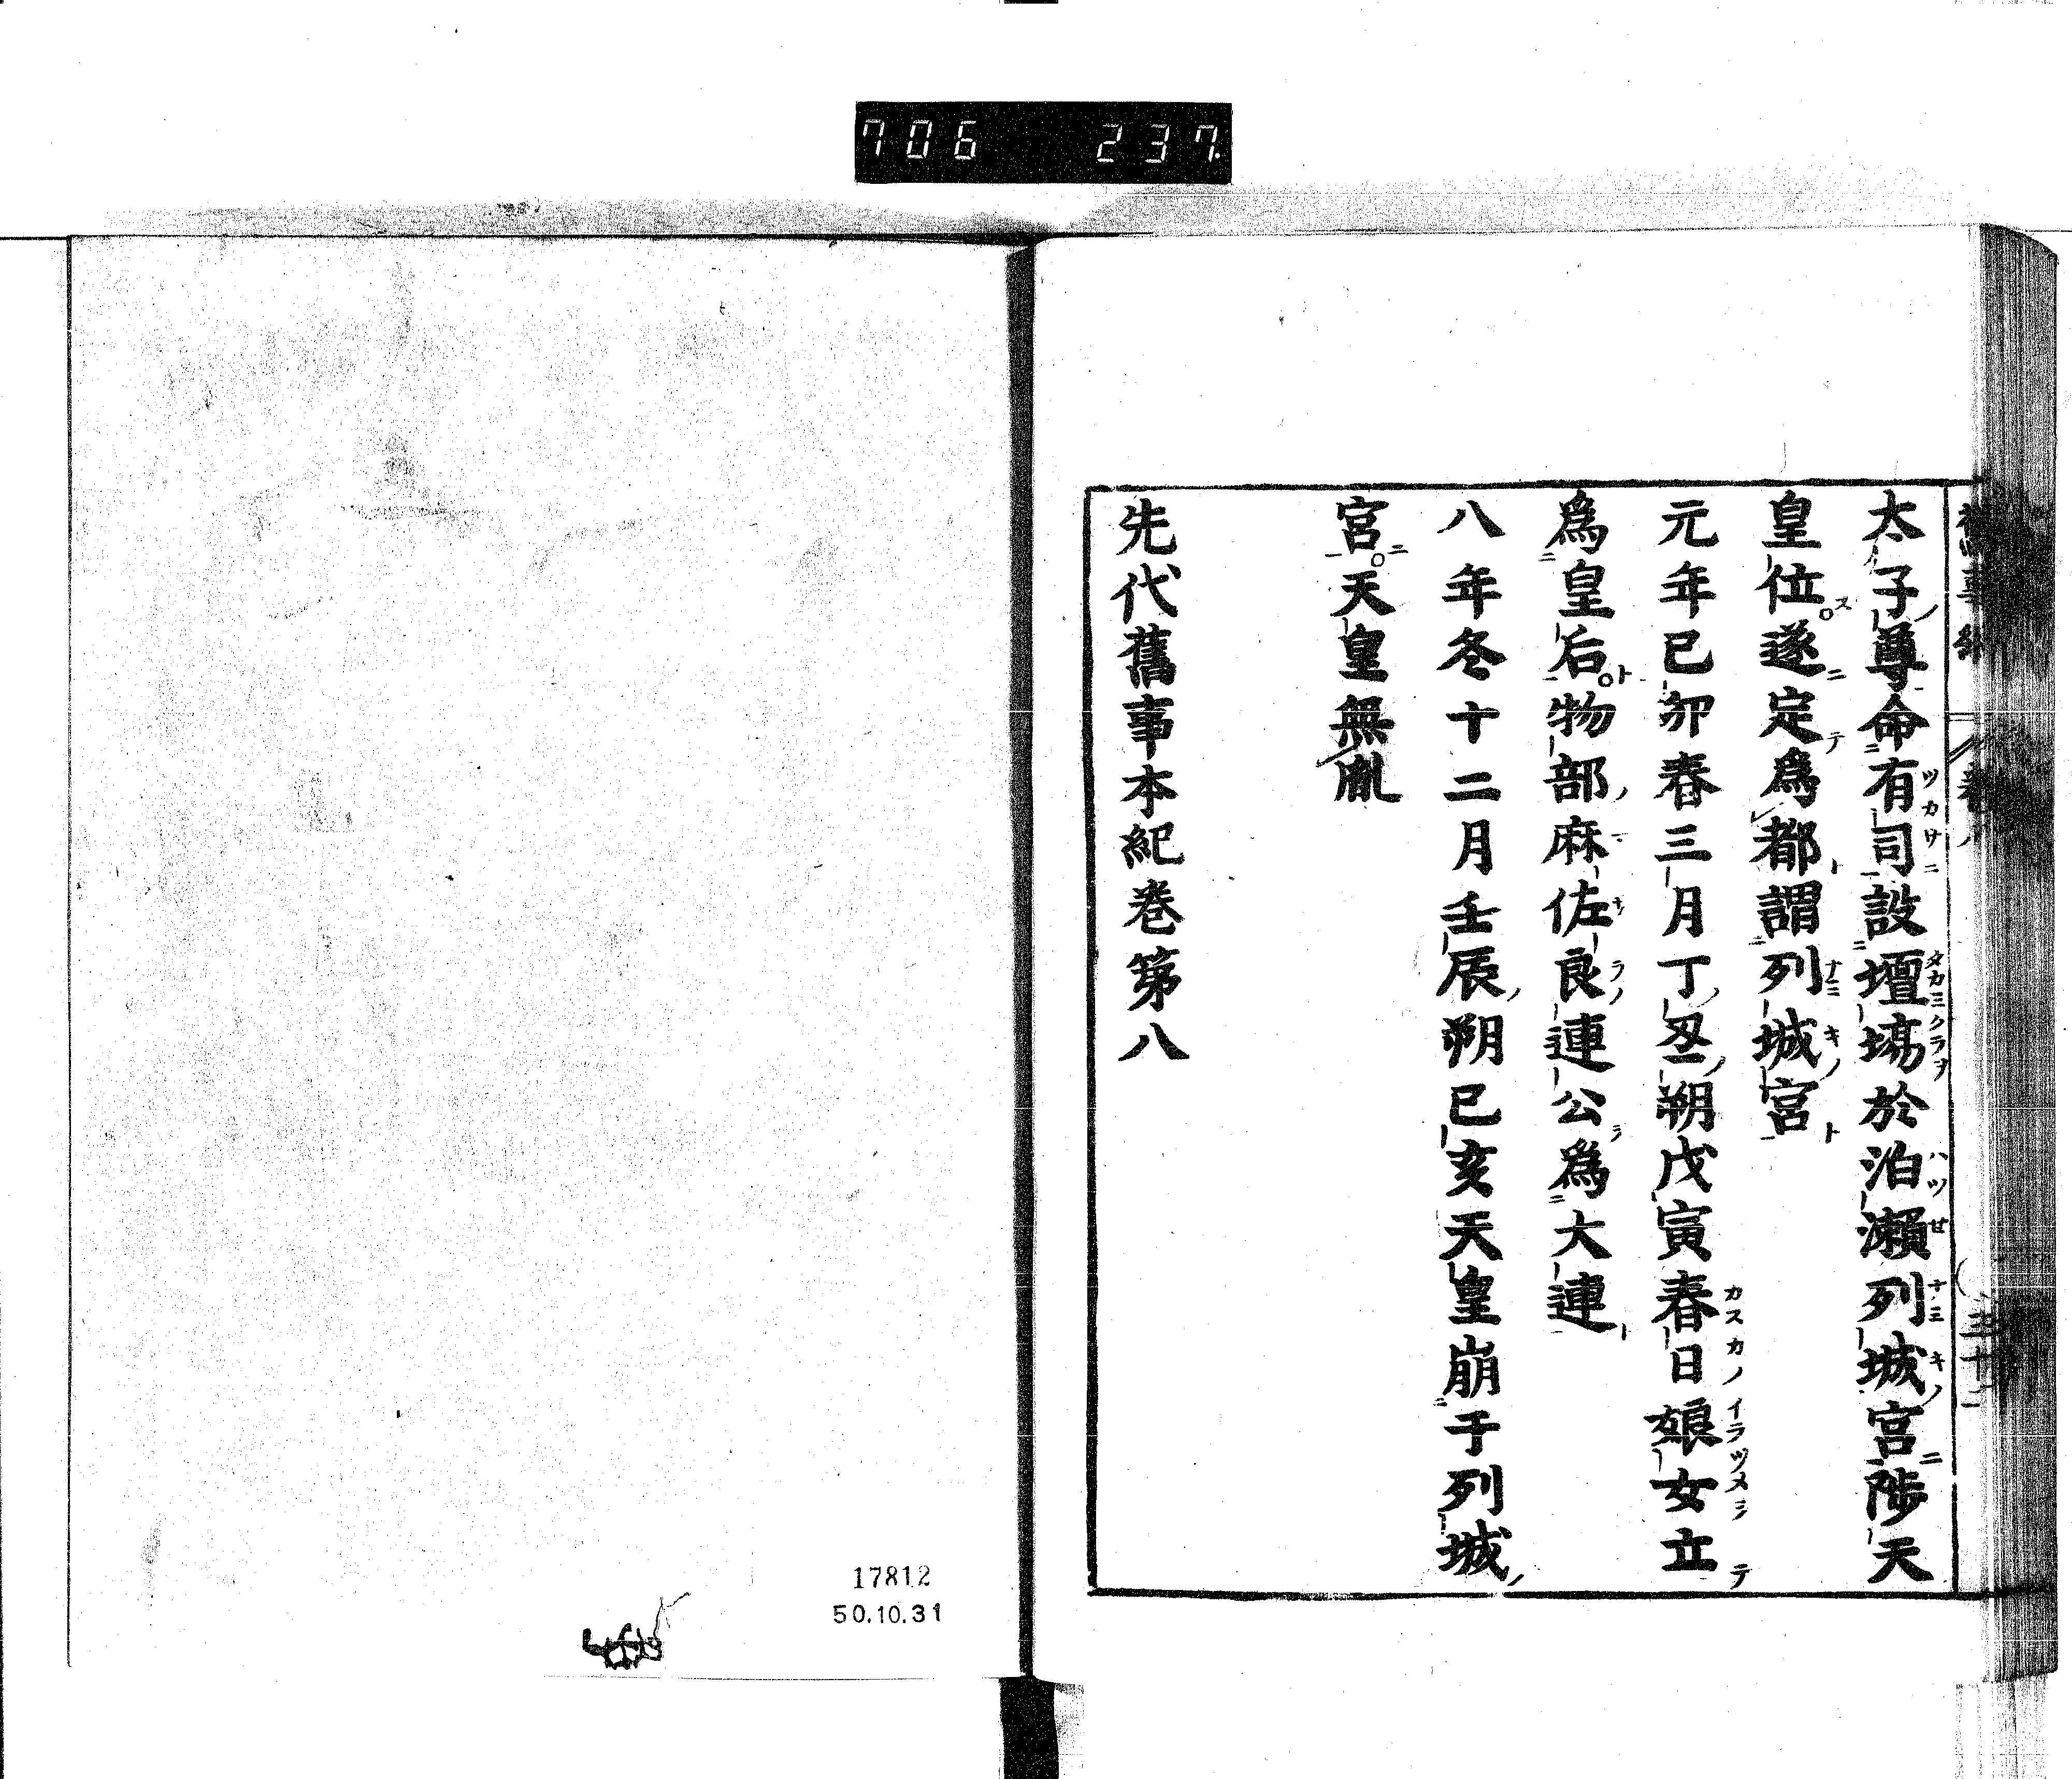 706 237.
太子尊命有司設壇場於泊瀨列城宮陟天
皇位遂定為都謂列城宮
元年己卯春三月丁丑朔戊寅春日娘女立
為皇后物部麻佐良連公為大連
八年冬十二月壬辰朔己亥天皇崩于列城
宮天皇無胤
先代舊事本紀卷第八
17812
50.10.31